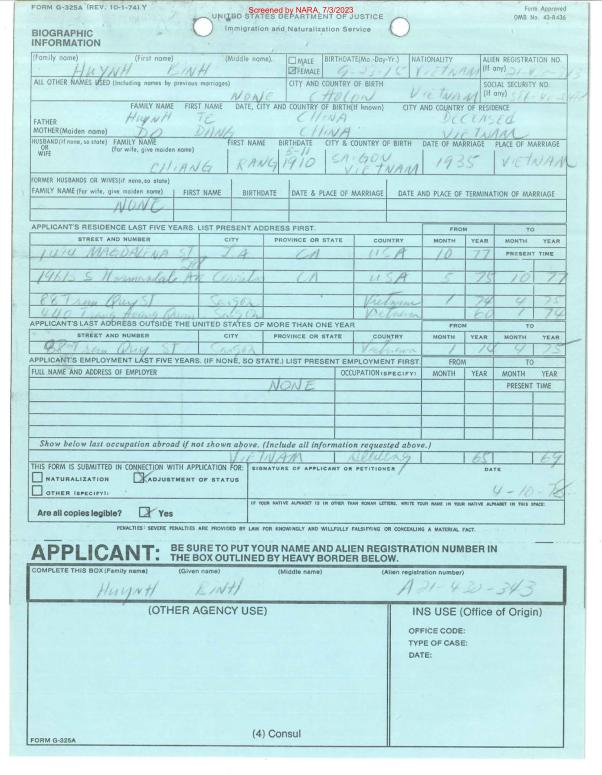 FORM G-325A (REV. 10-1-74) Y
Screened by NARA, 7/3/2023
Form Approved
OMB No. 43-R436
UNITED STATES DEPARTMENT OF JUSTICE
Immigration and Naturalization Service
BIOGRAPHIC
INFORMATION
(Family name) (First name) (Middle name). MALE FEMALE BIRTHDATE(Mo.-Day-Yr.) NATIONALITY ALIEN REGISTRATION NO. (If any)
HUYNH BINH VIETNAM
ALL OTHER NAMES USED (Including names by previous marriages) CITY AND COUNTRY OF BIRTH SOCIAL SECURITY NO. (If any)
NONE CHOLON VIETNAM
FAMILY NAME FIRST NAME DATE, CITY AND COUNTRY OF BIRTH(If known) CITY AND COUNTRY OF RESIDENCE
FATHER HUYNH TC CHINA DECEASED
MOTHER(Maiden name) DO DANG CHINA VIETNAM
HUSBAND(If none, so state) OR WIFE FAMILY NAME (For wife, give maiden name) FIRST NAME BIRTHDATE CITY & COUNTRY OF BIRTH DATE OF MARRIAGE PLACE OF MARRIAGE
CHIANG RANG 5-11 1910 SAIGON VIETNAM 1935 VIETNAM
FORMER HUSBANDS OR WIVES(if none, so state)
FAMILY NAME (For wife, give maiden name) FIRST NAME BIRTHDATE DATE & PLACE OF MARRIAGE DATE AND PLACE OF TERMINATION OF MARRIAGE
NONE
APPLICANT'S RESIDENCE LAST FIVE YEARS. LIST PRESENT ADDRESS FIRST. FROM TO
STREET AND NUMBER CITY PROVINCE OR STATE COUNTRY MONTH YEAR MONTH YEAR
MAGDALENA ST LA CA USA 10 77 PRESENT TIME
S Normandale Ave Cerritos CA USA 5 75 10 77
88 Tran Quy ST Saigon Vietnam 1 74 4 75
440 Saigon Vietnam 60 1 74
APPLICANT'S LAST ADDRESS OUTSIDE THE UNITED STATES OF MORE THAN ONE YEAR FROM TO
STREET AND NUMBER CITY PROVINCE OR STATE COUNTRY MONTH YEAR MONTH YEAR
88 Tran Quy ST Saigon Vietnam 1 74 4 75
APPLICANT'S EMPLOYMENT LAST FIVE YEARS. (IF NONE, SO STATE.) LIST PRESENT EMPLOYMENT FIRST. FROM TO
FULL NAME AND ADDRESS OF EMPLOYER OCCUPATION(SPECIFY) MONTH YEAR MONTH YEAR
NONE PRESENT TIME
Show below last occupation abroad if not shown above. (Include all information requested above.)
VIETNAM 65 69
THIS FORM IS SUBMITTED IN CONNECTION WITH APPLICATION FOR: SIGNATURE OF APPLICANT OR PETITIONER DATE
NATURALIZATION ADJUSTMENT OF STATUS
OTHER (SPECIFY): 4-10-78
Are all copies legible? Yes
IF YOUR NATIVE ALPHABET IS IN OTHER THAN ROMAN LETTERS, WRITE YOUR NAME IN YOUR NATIVE ALPHABET IN THIS SPACE:
PENALTIES: SEVERE PENALTIES ARE PROVIDED BY LAW FOR KNOWINGLY AND WILLFULLY FALSIFYING OR CONCEALING A MATERIAL FACT.
APPLICANT: BE SURE TO PUT YOUR NAME AND ALIEN REGISTRATION NUMBER IN
THE BOX OUTLINED BY HEAVY BORDER BELOW.
COMPLETE THIS BOX (Family name) (Given name) (Middle name) (Alien registration number)
HUYNH BINH A21-430-343
(OTHER AGENCY USE) INS USE (Office of Origin)
OFFICE CODE:
TYPE OF CASE:
DATE:
(4) Consul
FORM G-325A